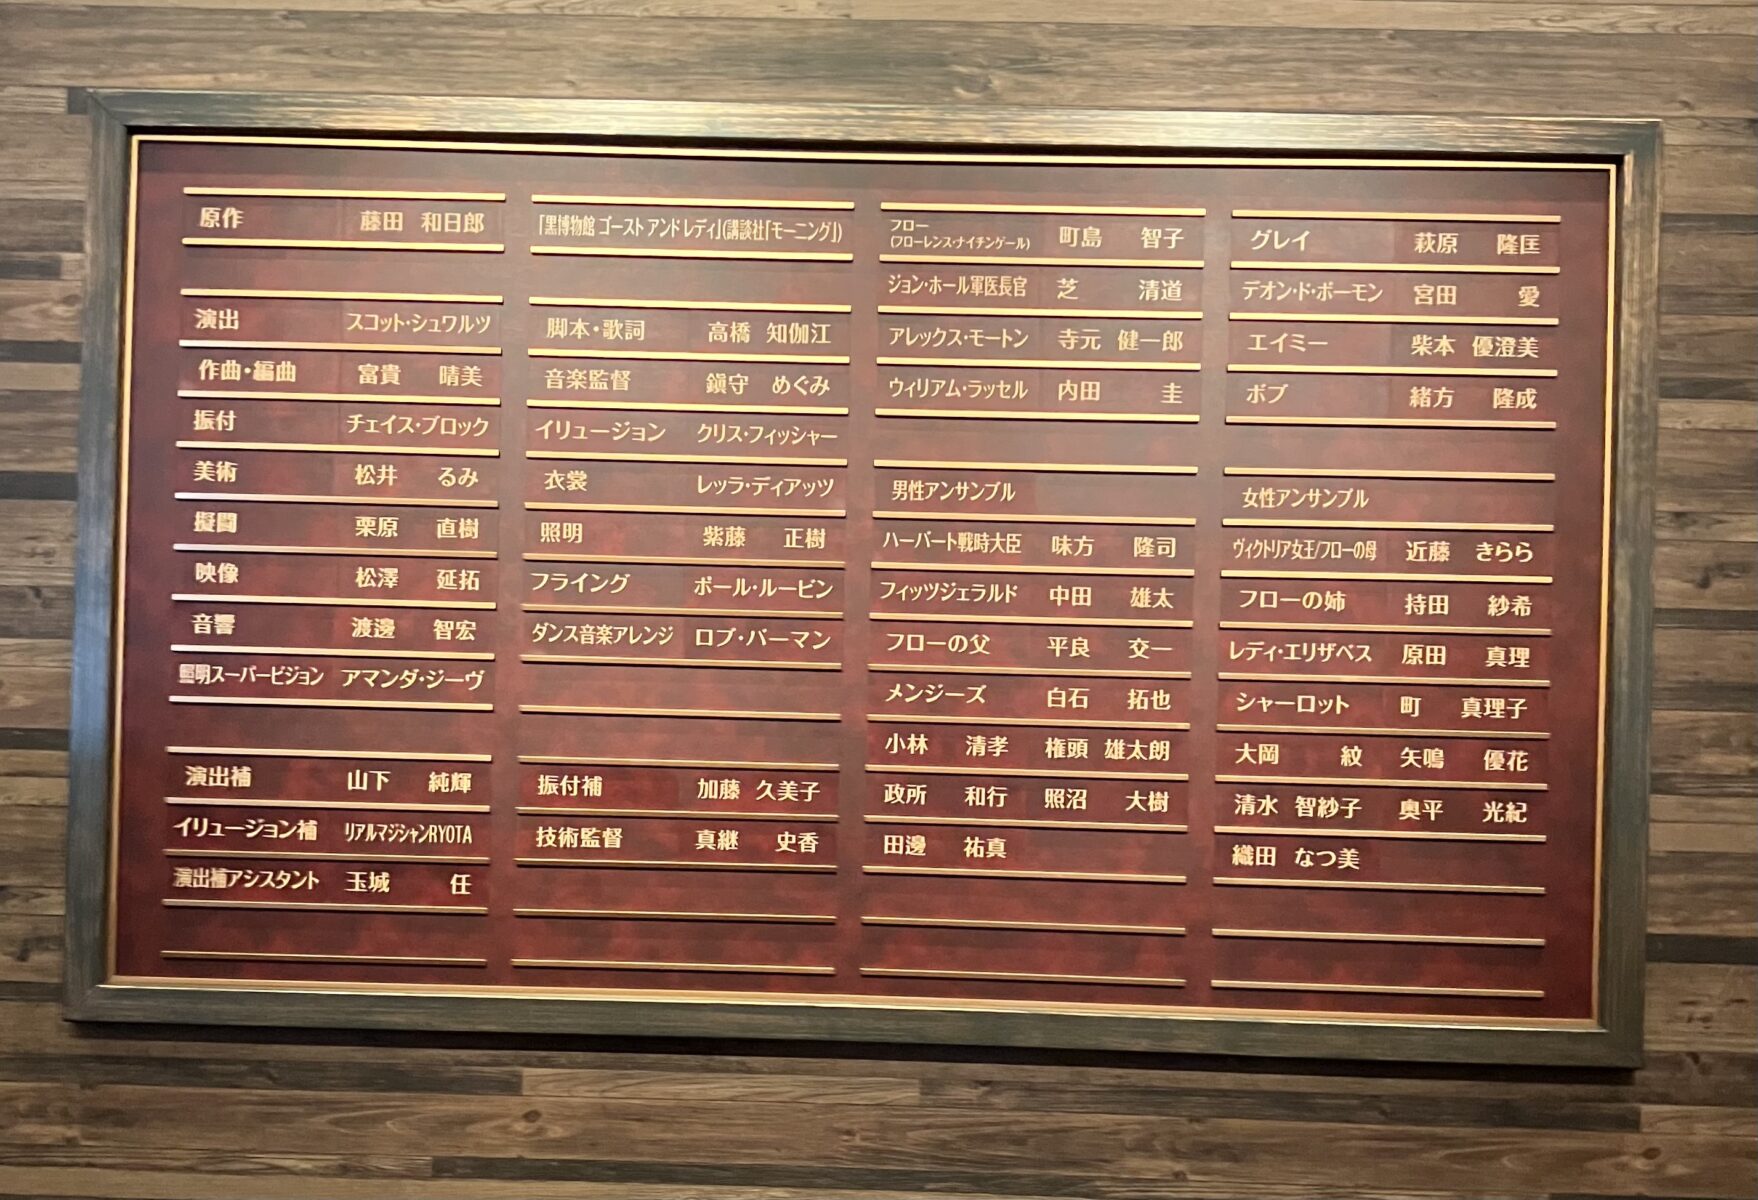 原作 藤田 和日郎
演出 スコット・シュワルツ
作曲・編曲 富貴 晴美
振付 チェイス・ブロック
美術 松井 るみ
擬闘 栗原 直樹
映像 松澤 延拓
音響 渡邊 智宏
照明スーパービジョン アマンダ・ジーヴ
演出補 山下 純輝
イリュージョン補 リアルマジシャンRYOTA
演出補アシスタント 玉城 任
「黒博物館 ゴースト アンド レディ」(講談社「モーニング」)
脚本・歌詞 高橋 知伽江
音楽監督 鎭守 めぐみ
イリュージョン クリス・フィッシャー
衣裳 レッラ・ディアッツ
照明 紫藤 正樹
フライング ポール・ルービン
ダンス音楽アレンジ ロブ・バーマン
振付補 加藤 久美子
技術監督 真継 史香
フロー
(フローレンス・ナイチンゲール) 町島 智子
ジョン・ホール軍医長官 芝 清道
アレックス・モートン 寺元 健一郎
ウィリアム・ラッセル 内田 圭
男性アンサンブル
ハーバート戦時大臣 味方 隆司
フィッツジェラルド 中田 雄太
フローの父 平良 交一
メンジーズ 白石 拓也
小林 清孝 権頭 雄太朗
政所 和行 照沼 大樹
田邊 祐真
グレイ 萩原 隆匡
デオン・ド・ボーモン 宮田 愛
エイミー 柴本 優澄美
ボブ 緒方 隆成
女性アンサンブル
ヴィクトリア女王/フローの母 近藤 きらら
フローの姉 持田 紗希
レディ・エリザベス 原田 真理
シャーロット 町 真理子
大岡 紋 矢鳴 優花
清水 智紗子 奥平 光紀
織田 なつ美